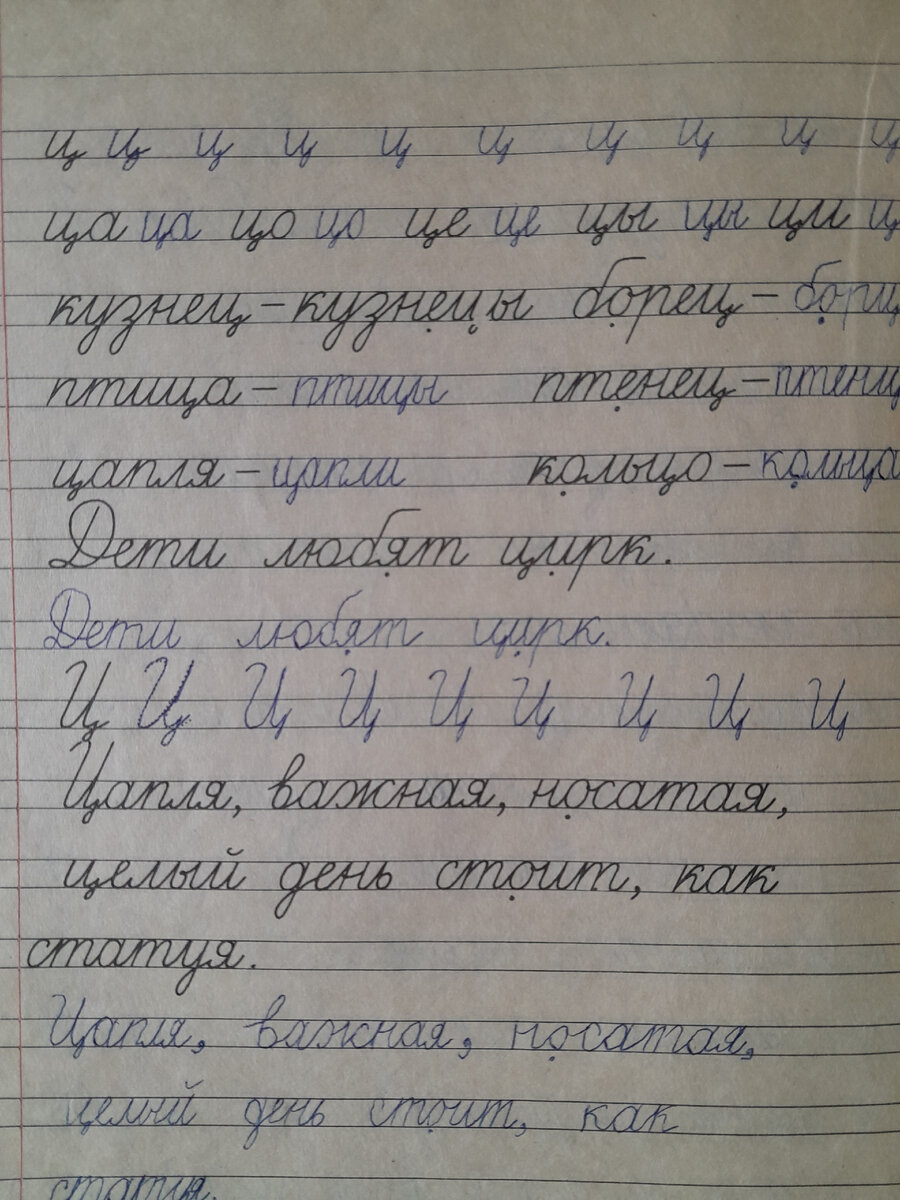 ц ц ц ц ц ц ц ц ц ц
ца ца цо цо це це цы цы ци ц
кузнец – кузнецы борец – борц
птица – птицы птенец – птенц
цапля – цапли кольцо – кольца
Дети любят цирк.
Дети любят цирк.
Ц Ц Ц Ц Ц Ц Ц Ц Ц
Цапля, важная, носатая,
целый день стоит, как
статуя.
Цапля, важная, носатая,
целый день стоит, как
статуя.